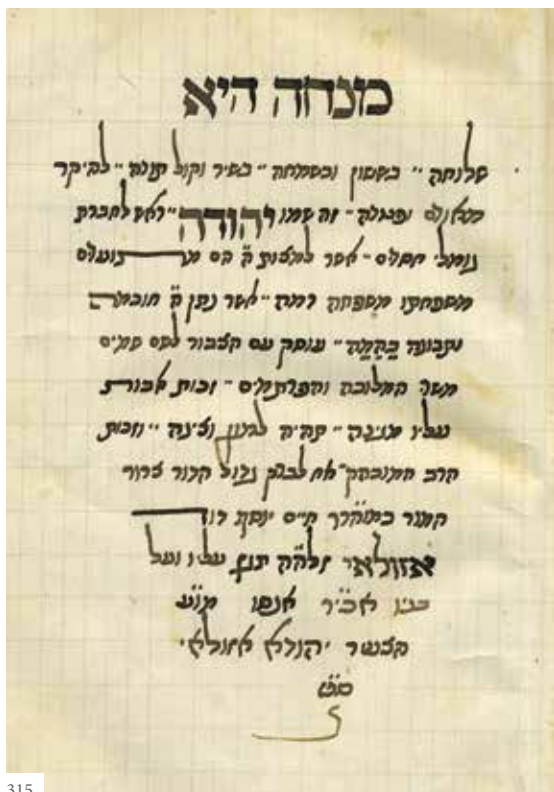 מנחה היא
שלוחה " בששון ובשמחה " בשיר וקול תודה " להיקר
ונעלה " זה שמו יהודה " ראש לחברת
גומלי חסדים " אשר למצות ה' הם
משפחתו משפחה רמה " אשר נתן ה' חכמה
ותבונה בהמה " עוסק עם הצבור לשם שמים
משרי המלוכה והפרתמים " זכות אבות
עליו מגינה " תהיה לרצון וצינה " וזכות
הרב המובהק גדול הדור
כמוהר"ר חיים יוסף דוד
אזולאי זלה"ה תגן עליו ועל
בניו אכי"ר
הצעיר יהודא אזולאי
ס"ט
315